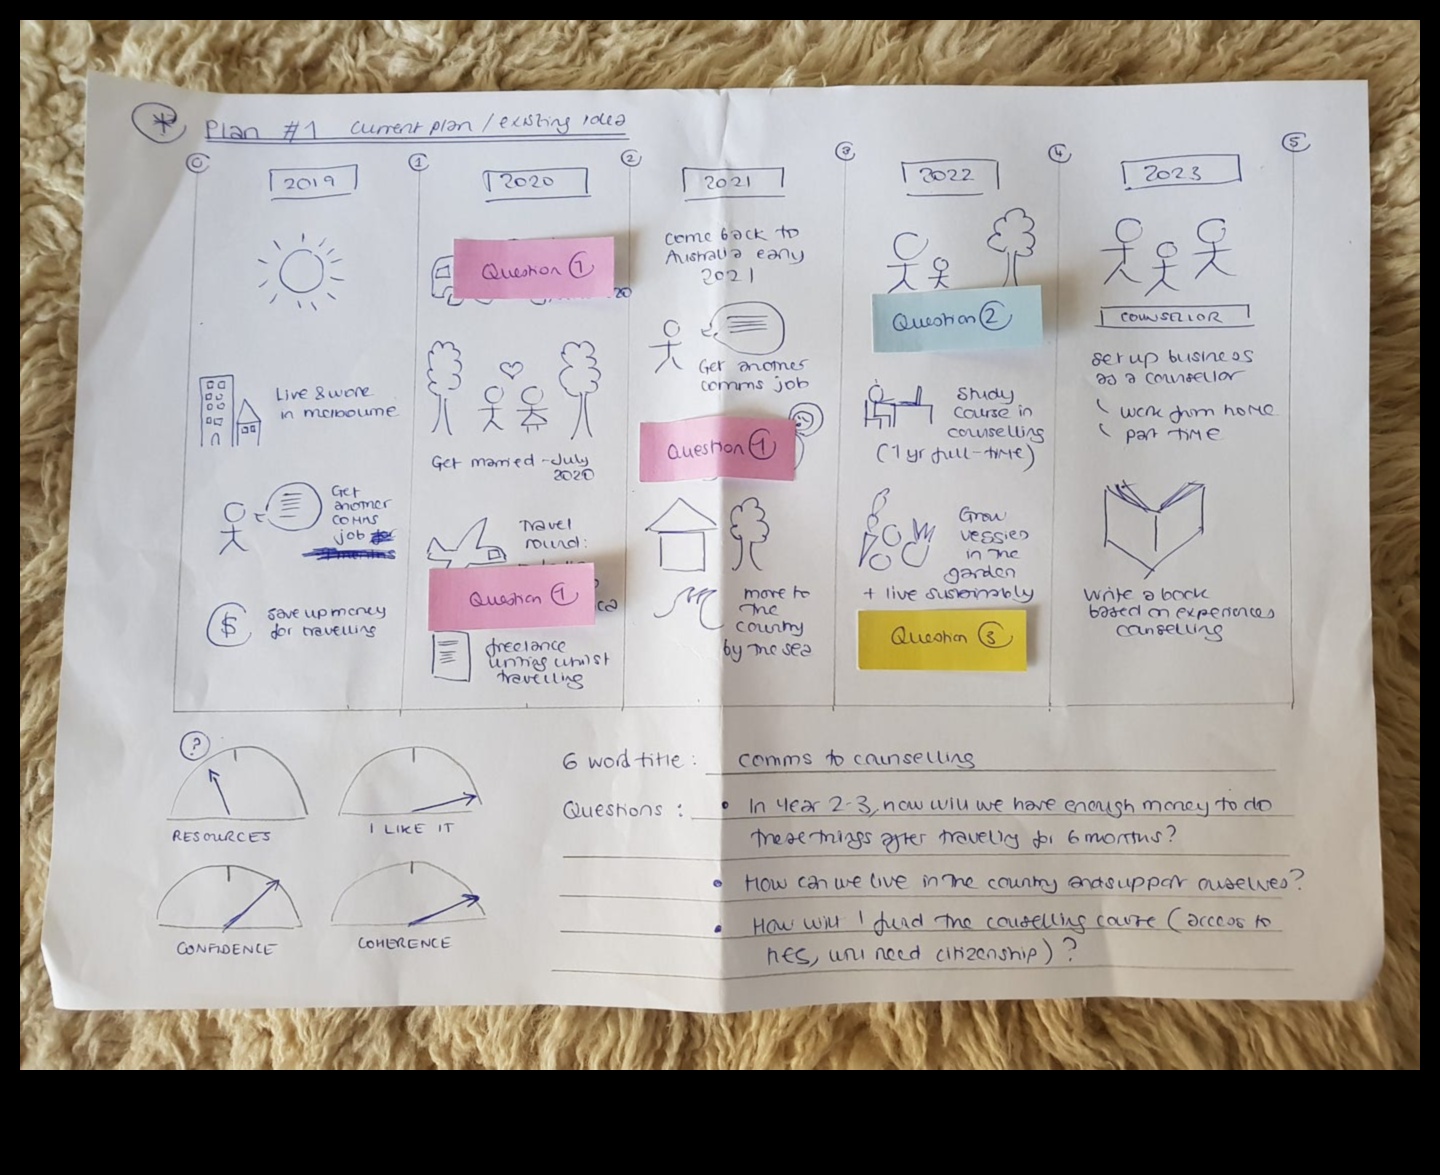 Plan #1 current plan / existing idea
0
1
2
3
4
5
2019
Live & work
in melbourne
Get
another
comms
job
$ save up money
for travelling
2020
Question 1
20
Get married - July
2020
Travel
round:
Question 1
ca
freelance
writing whilst
travelling
2021
come back to
Australia early
2021
Get another
comms job
Question 1
move to
the
country
by the sea
2022
Question 2
Study
course in
counselling
(1 yr full-time)
Grow
veggies
in the
garden
+ live sustainably
Question 3
2023
COUNSELLOR
set up business
as a counsellor
work from home
part time
write a book
based on experiences
counselling
?
RESOURCES
I LIKE IT
CONFIDENCE
COHERENCE
6 word title: comms to counselling
Questions: • In year 2-3, how will we have enough money to do
these things after traveling for 6 months?
• How can we live in the country and support ourselves?
• How will I fund the counselling course (access to
HES, will need citizenship)?